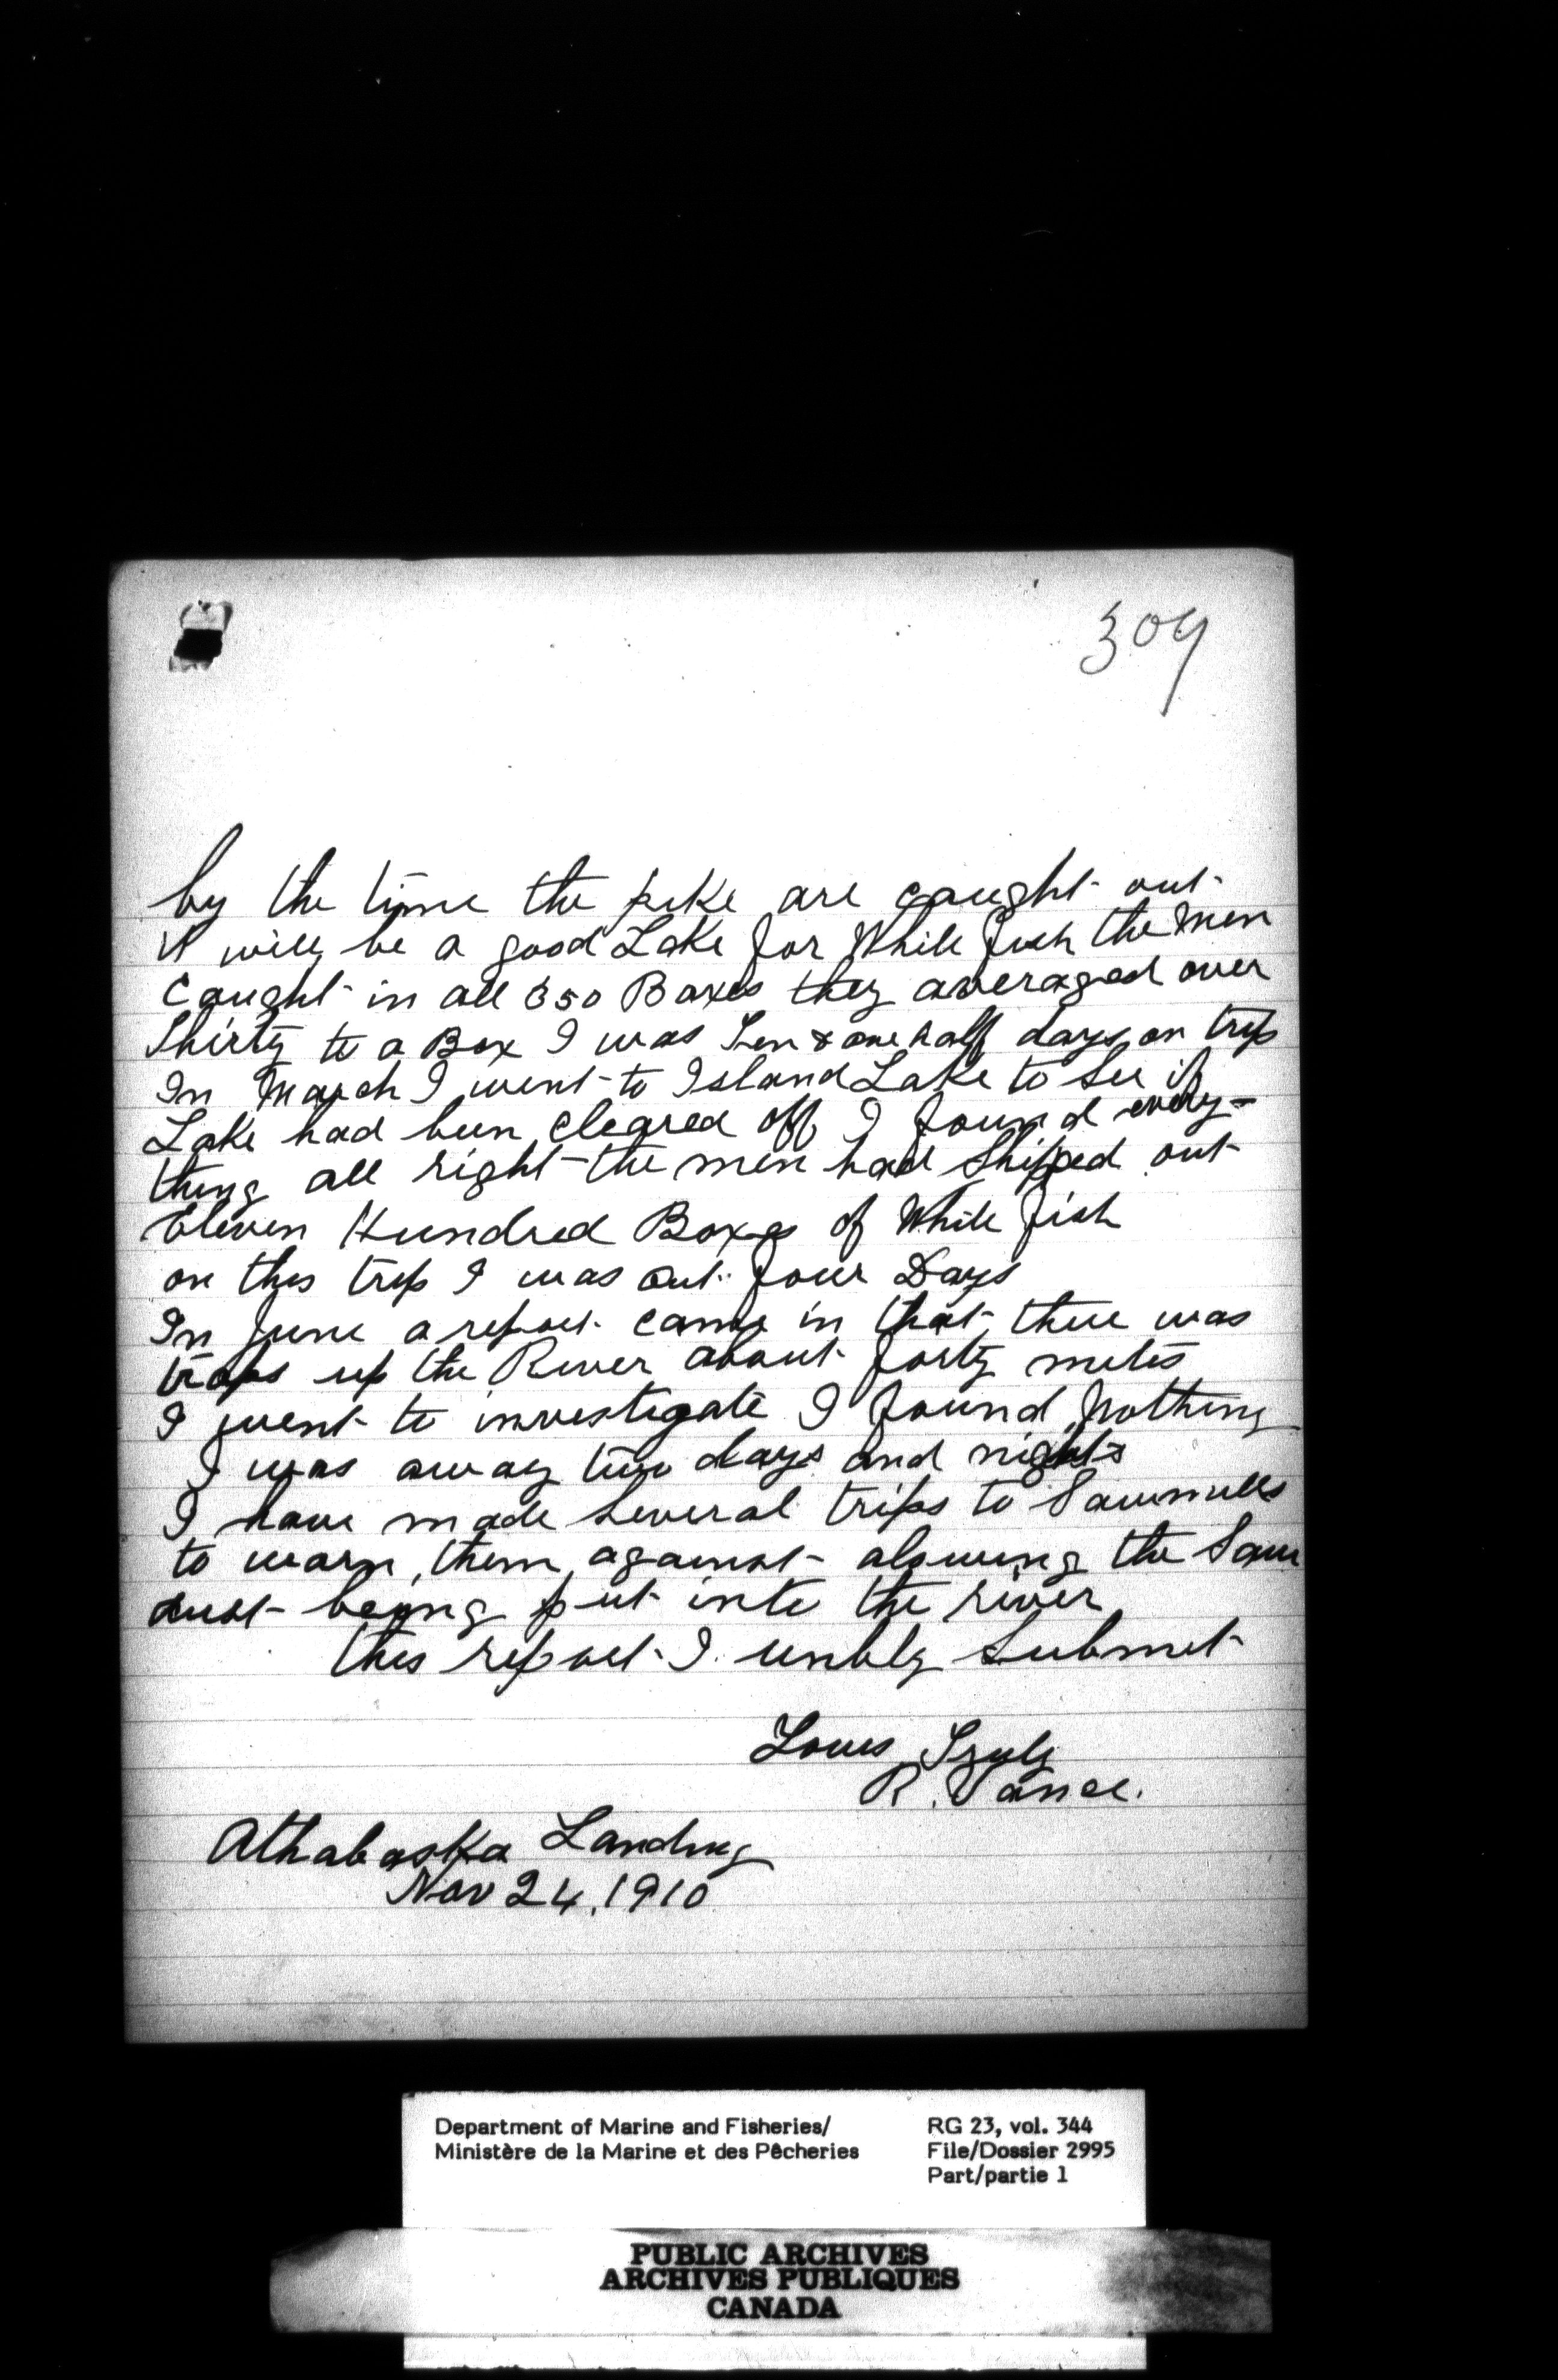 309
by the time the pike are caught out
it will be a good Lake for White fish the men
Caught in all 350 Boxes they averaged over
Thirty to a Box I was Ten & one half days on trip
In March I went to Island Lake to see if
Lake had been cleared off I found every-
thing all right the men had Shipped out
Eleven Hundred Boxes of White fish
on this trip I was out four Days
In June a report came in that there was
traps up the River about forty miles
I went to investigate I found Nothing
I was away two days and nights
I have made several trips to Sawmills
to warn them against alowing the Saw
dust being put into the river
this report I umbly Submit
Yours Truly
R. Vance.
Athabaska Landing
Nov 24, 1910
Department of Marine and Fisheries/
Ministère de la Marine et des Pêcheries
RG 23, vol. 344
File/Dossier 2995
Part/partie 1
PUBLIC ARCHIVES
ARCHIVES PUBLIQUES
CANADA